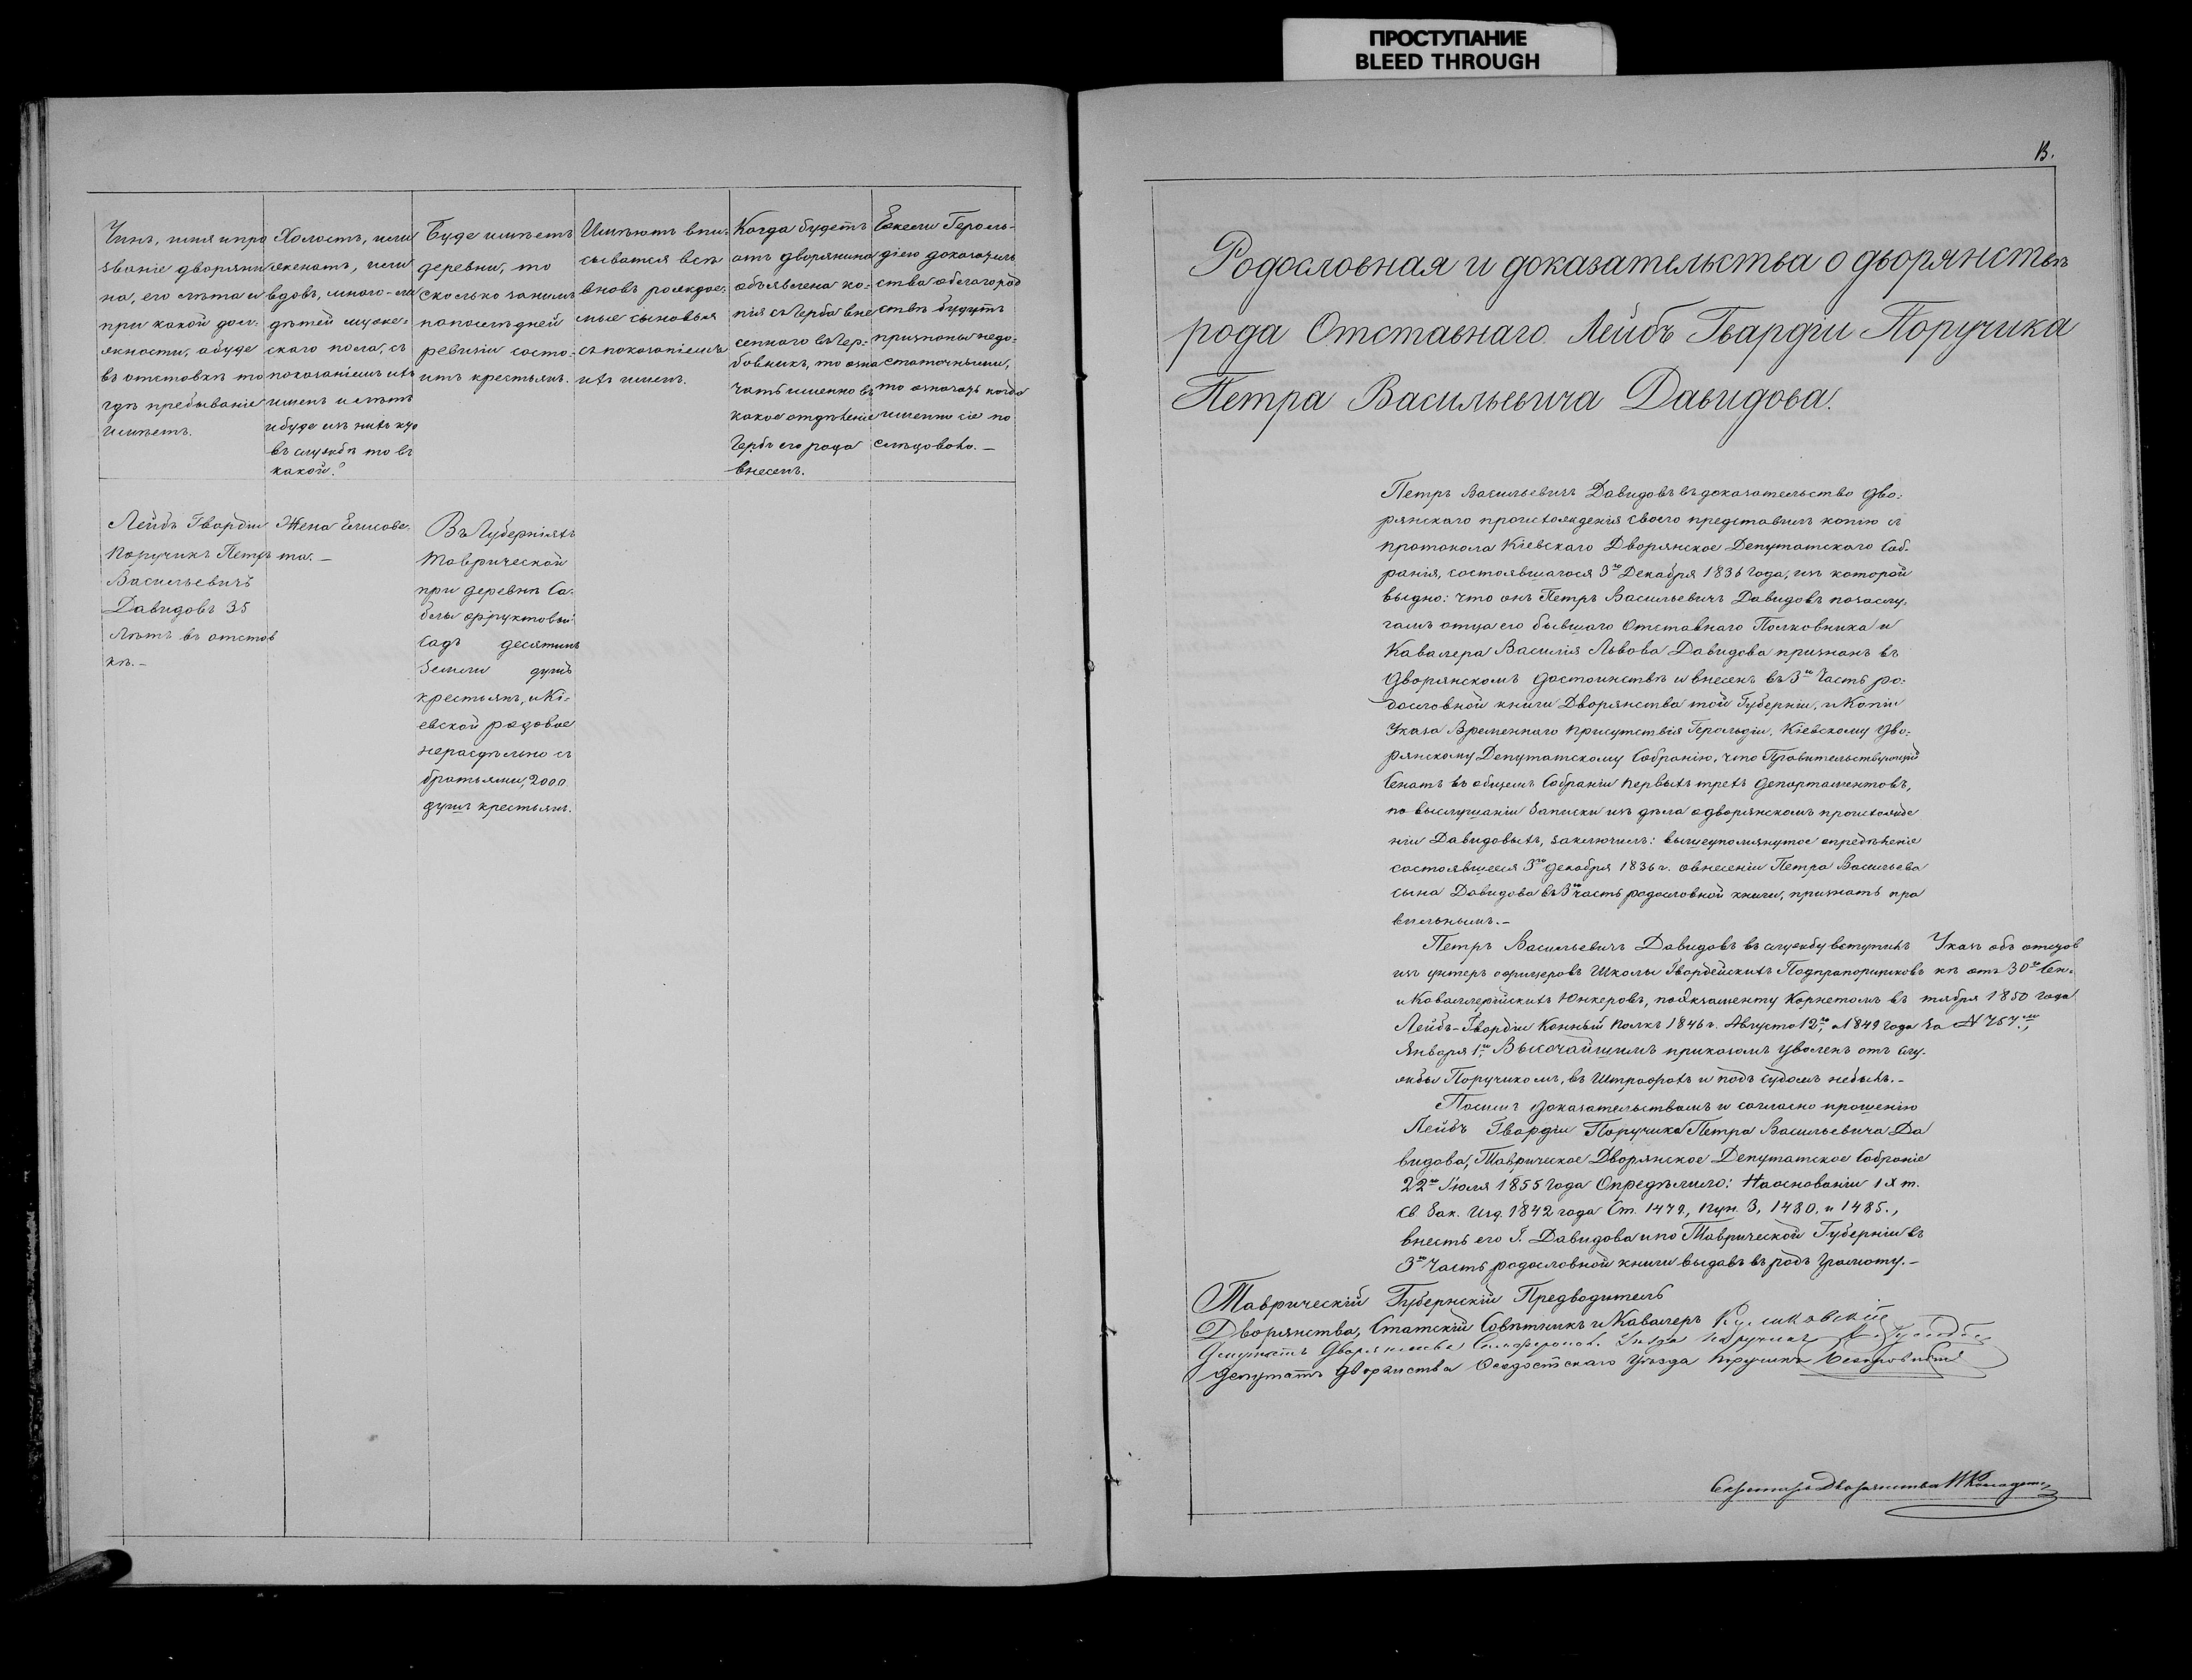 ПРОСТУПАНИЕ
BLEED THROUGH
Чинъ, имя и про
званіе дворяни
на, его лѣта и
при какой дол-
жности, а буде
въ отставкѣ то
гдѣ пребываніе
имѣетъ.
Холостъ, или
женатъ, или
вдовъ, много-ли
дѣтей муже-
скаго пола, съ
показаніемъ ихъ
именъ и лѣтъ
и буде изъ нихъ кто
въ службѣ то въ
какой?
Буде имѣетъ
деревни, то
сколько занимъ
по послѣдней
ревизіи состо-
итъ крестьянъ.
Имѣютъ впи-
сыватся всѣ
вновь рождае-
мые сыновья
съ показаніемъ
ихъ именъ.
Когда будетъ
отъ дворянина
объявлена ко-
пія съ Герба вне
сеннаго въ Гер-
бовникъ, то озна
чать именно въ
какое отдѣленіе
Гербъ его рода
внесенъ.
Ежели Героль-
діею доказатель
ства о благород
ствѣ будутъ
признаны недо-
статочными,
то означать когда
именно сіе по
слѣдовало. —
Лейбъ Гвардіи
Поручикъ Петръ
Васильевичъ
Давидовъ 35
лѣтъ въ отстав
кѣ. —
Жена Елисаве-
та. —
Въ Губерніяхъ
Таврической
при деревнѣ Са-
блы фруктовый
садъ десятинъ
земли душъ
крестьянъ, и Кі-
евской родовое
нераздѣльно съ
братьями, 2000
душъ крестьянъ.
13.
Родословная и доказательства о дворянствѣ
рода Отставнаго Лейбъ Гвардіи Поручика
Петра Васильевича Давидова.
Петръ Васильевичъ Давидовъ въ доказательство дво-
рянскаго происхожденія своего представилъ копію съ
протокола Кіевскаго Дворянское Депутатскаго Соб-
ранія, состоявшагося 3го Декабря 1836 года, изъ которой
видно: что онъ Петръ Васильевичъ Давидовъ по заслу-
гамъ отца его бывшаго Отставнаго Полковника и
Кавалера Василія Львова Давидова признанъ въ
дворянскомъ достоинствѣ и внесенъ въ 3ю Часть ро-
дословной книги Дворянства той Губерніи, и Копіи
Указа Временнаго Присутствія Герольдіи, Кіевскому Дво-
рянскому Депутатскому Собранію, что Правительствующій
Сенатъ въ общемъ Собраніи первыхъ трехъ Департаментовъ,
по выслушаніи Записки изъ дѣла о дворянскомъ происхожде
ніи Давидовыхъ, заключилъ: вышеупомянутое опредѣленіе
состоявшееся 3го декабря 1836 г. о внесеніи Петра Васильева
сына Давидова въ 3ю часть родословной книги, признать пра
вильнымъ. —
Петръ Васильевичъ Давидовъ въ службу вступилъ
изъ унтеръ офицеровъ Школы Гвардейскихъ Подпрапорщиковъ
и Кавалерійскихъ Юнкеровъ, по Экзаменту Корнетомъ въ
Лейбъ-Гвардіи Конный полкъ 1846 г. Августа 12го, а 1849 года
Января 1го Высочайшимъ приказомъ уволенъ отъ слу-
жбы Поручикомъ, въ Штрафахъ и подъ судомъ небылъ. —
Указъ объ отстав
кѣ отъ 30го Сен-
тября 1850 года
за №
По симъ доказательствамъ и согласно прошенію
Лейбъ Гвардіи Поручика Петра Васильевича Да
видова, Таврическое Дворянское Депутатское Собраніе
22го Іюля 1855 года Опредѣлило: На основаніи IX т.
Св. Зак. Изд. 1842 года Ст. 1479, пун. 3, 1480, и 1485.,
внесть его Г. Давидова и по Таврической Губерніи въ
3ю Часть родословной книги выдавъ въ родъ Грамоту. —
Таврическій Губернскій Предводитель
Дворянства, Статскій Совѣтникъ и Кавалеръ
Депутатъ Дворянства Симфероп. Уѣзда Поручикъ
Депутатъ Дворянства Ѳеодосійскаго Уѣзда Поручикъ
Секретарь Дворянства